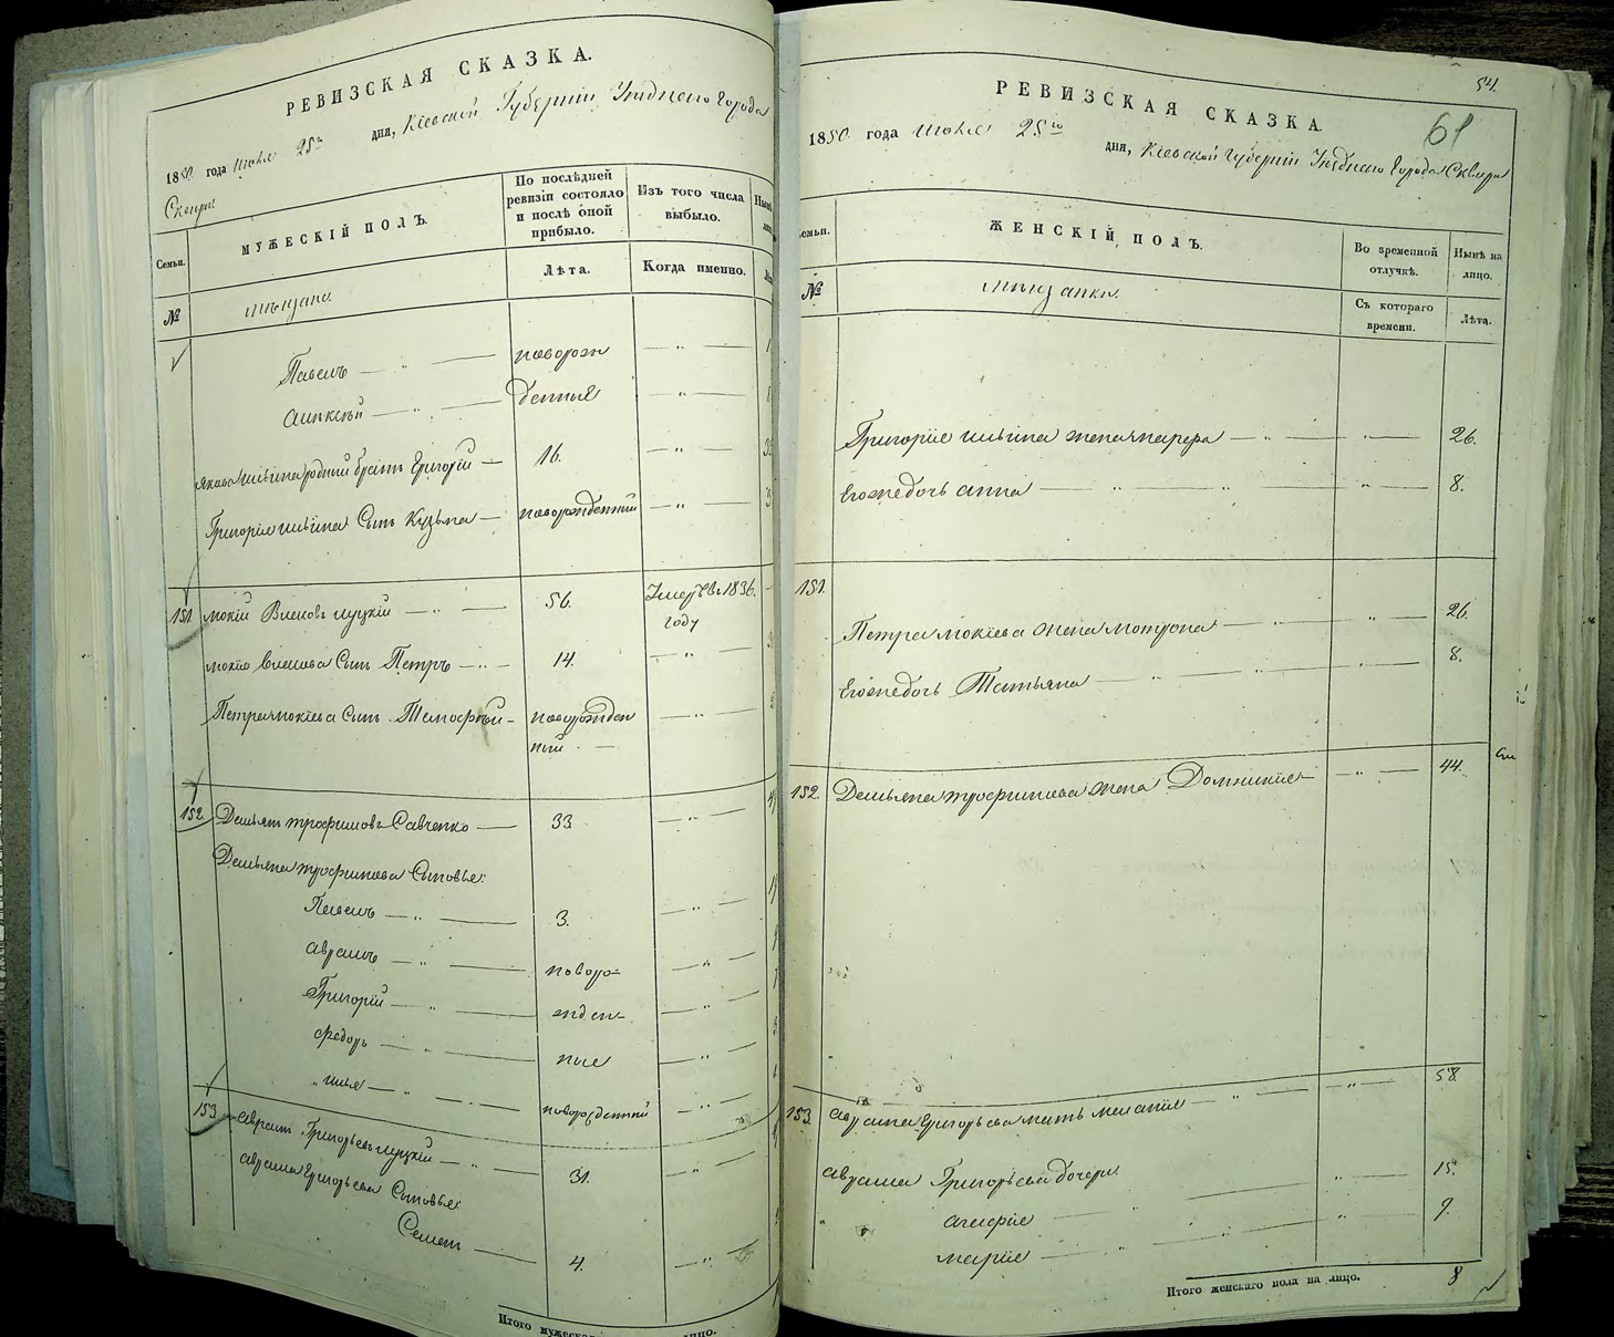 РЕВИЗСКАЯ СКАЗКА.
1850 года июля 25го дня, Кіевской Губерніи Уѣзднаго Города
Сквиры
Семьи.
МУЖЕСКІЙ ПОЛЪ.
По послѣдней
ревизіи состояло
и послѣ оной
прибыло.
Изъ того числа
выбыло.
№
мѣщане.
Лѣта.
Когда именно.
Павелъ — " — новорож
Алексѣй — " — денные — " —
Якова Ильина родный братъ Григорій — 16. — " —
Григорія Ильина Сынъ Кузьма — новорожденный — " —
151 Мокій Власовъ Луцкій — " — 56. Умеръ въ 1836.
году
Мокія Власова Сынъ Петръ — " — 14. — " —
Петра Мокіева Сынъ Тимофѣй — новорожден — " —
ный —
152. Демьянъ Трофимовъ Савченко — 33. — " —
Демьяна Трофимова Сыновья:
Павелъ — " — 3. — " —
Аврамъ — " — новоро- — " —
Григорій — " — жден- — " —
Федоръ — " — ные — " —
Илья — " — новорожденный — " —
153. Аврамъ Григорьевъ Луцкій — " — 31. — " —
Аврама Григорьева Сыновья:
Семенъ — 4. — " —
Итого мужеска
лицо.
54.
61
РЕВИЗСКАЯ СКАЗКА.
1850. года июля 25го дня, Кіевской Губерніи Уѣзднаго Города Сквиры
семьи.
ЖЕНСКІЙ ПОЛЪ.
Во временной
отлучкѣ.
Нынѣ на
лицо.
№
мѣщанки.
Съ котораго
времени.
Лѣта.
Григорія Ильина жена Марфа — " — " — 26.
Егоже дочь Анна — " — " — " — 8.
151.
Петра Мокіева жена Мотрона — " — " — 26.
Егоже дочь Татьяна — " — " — 8.
152. Демьяна Трофимова жена Домникія — " — 44.
153. Аврама Григорьева мать Меланія — " — " — 58
Аврама Григорьева дочери
Агафія — " — " — 15.
Марія — " — " — 9.
Итого женскаго пола на лицо. 8